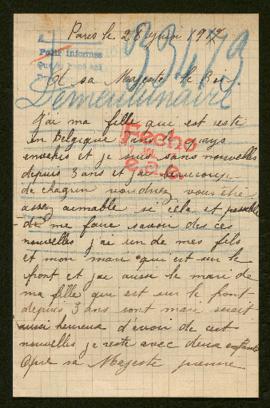 Paris le 28 juin 1917
33413
A
Pour informes
A sa Majesté le Roi
Demeulunaire
j'ai ma fille qui est resté
en Belgique dans pays
envahie et je suis sans nouvelles
depuis 3 ans et j'ai beaucoup
de chagrin voudriez vous être
assez aimable si cela est possible
de me faire savoir des ces
nouvelles j'ai un de mes fils
et mon mari qui est sur le
front et j'ai aussi le mari de
ma fille que est sur le front
depuis 3 ans sont mari serait
aussi heureux d'avoir de cest
nouvelles je reste avec deux enfants
Que sa Majesté prenne
Fecho